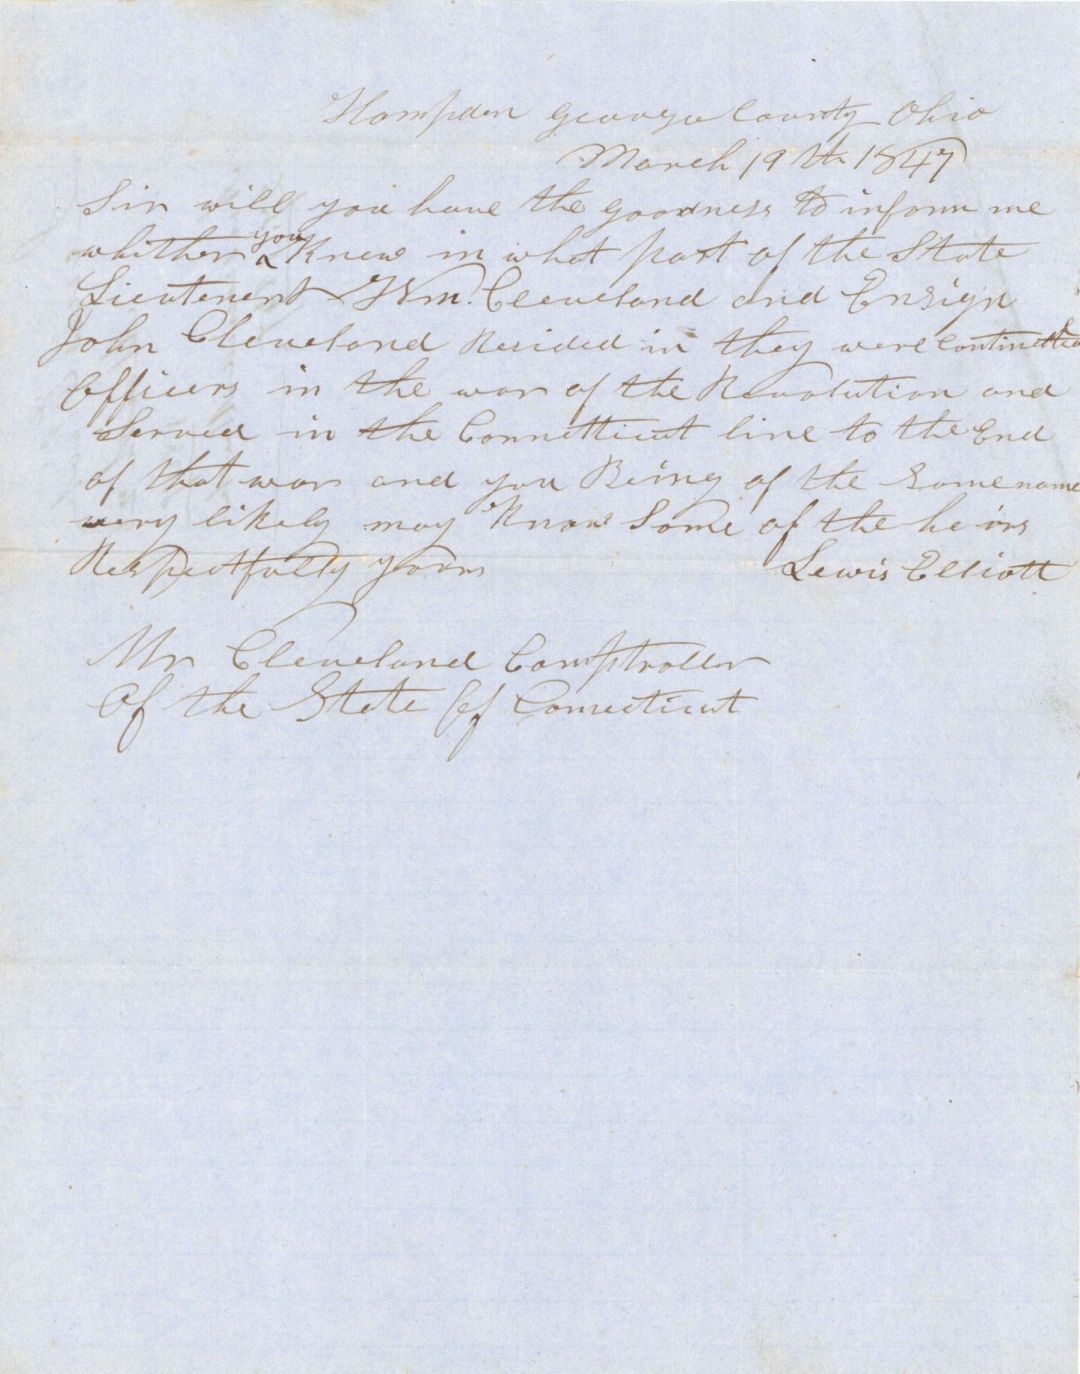 Hampden Geauga County Ohio
March 19th 1847
Sir will you have the goodness to inform me
whither you Knew in what part of the State
Lieutenent Wm. Cleveland and Ensign
John Cleveland Resided in they were
Officers in the war of the Revolution and
Served in the Connetticut line to the End
of that war and you Being of the Same name
very likely may Know Some of the heirs
Respectfully yours Lewis Elliott
Mr Cleveland Comptroller
Of the State Of Conecticut